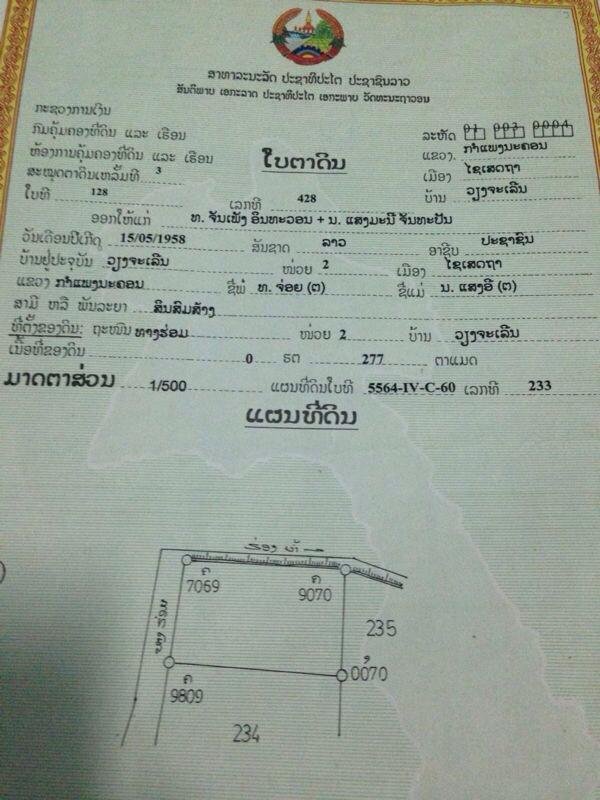 ສາທາລະນະລັດ ປະຊາທິປະໄຕ ປະຊາຊົນລາວ
ສັນຕິພາບ ເອກະລາດ ປະຊາທິປະໄຕ ເອກະພາບ ວັດທະນະຖາວອນ
ກະຊວງການເງິນ
ກົມຄຸ້ມຄອງທີ່ດິນ ແລະ ເຮືອນ
ລະຫັດ 01 003 0004
ຫ້ອງການຄຸ້ມຄອງທີ່ດິນ ແລະ ເຮືອນ
ໃບຕາດິນ
ແຂວງ. ກຳແພງນະຄອນ
ສະໝຸດຕາດິນເຫລັ້ມທີ 3
ເມືອງ ໄຊເສດຖາ
ໃບທີ 128 ເລກທີ 428 ບ້ານ ວຽງຈະເລີນ
ອອກໃຫ້ແກ່ ທ. ຈັນເພັງ ອິນທະວອນ + ນ. ແສງມະນີ ຈັນທະປັນ
ວັນເດືອນປີເກີດ 15/05/1958 ສັນຊາດ ລາວ ອາຊີບ ປະຊາຊົນ
ບ້ານຢູ່ປະຈຸບັນ ວຽງຈະເລີນ ໜ່ວຍ 2 ເມືອງ ໄຊເສດຖາ
ແຂວງ ກຳແພງນະຄອນ ຊື່ພໍ່ ທ. ຈ່ອຍ (ຕ) ຊື່ແມ່ ນ. ແສງອີ (ຕ)
ສາມີ ຫລື ພັນລະຍາ ສິນສົມສ້າງ
ທີ່ຕັ້ງຂອງດິນ: ຖະໜົນ ທາງຮ່ອມ ໜ່ວຍ 2 ບ້ານ ວຽງຈະເລີນ
ເນື້ອທີ່ຂອງດິນ 0 ຮຕ 277 ຕາແມດ
ມາດຕາສ່ວນ 1/500 ແຜນທີ່ດິນໃບທີ 5564-IV-C-60 ເລກທີ 233
ແຜນທີ່ດິນ
ຮ່ອງ ນ້ຳ
ຄ
7069
ຄ
9070
ທາງ ຮ່ອມ
235
0070
ຄ
9809
234